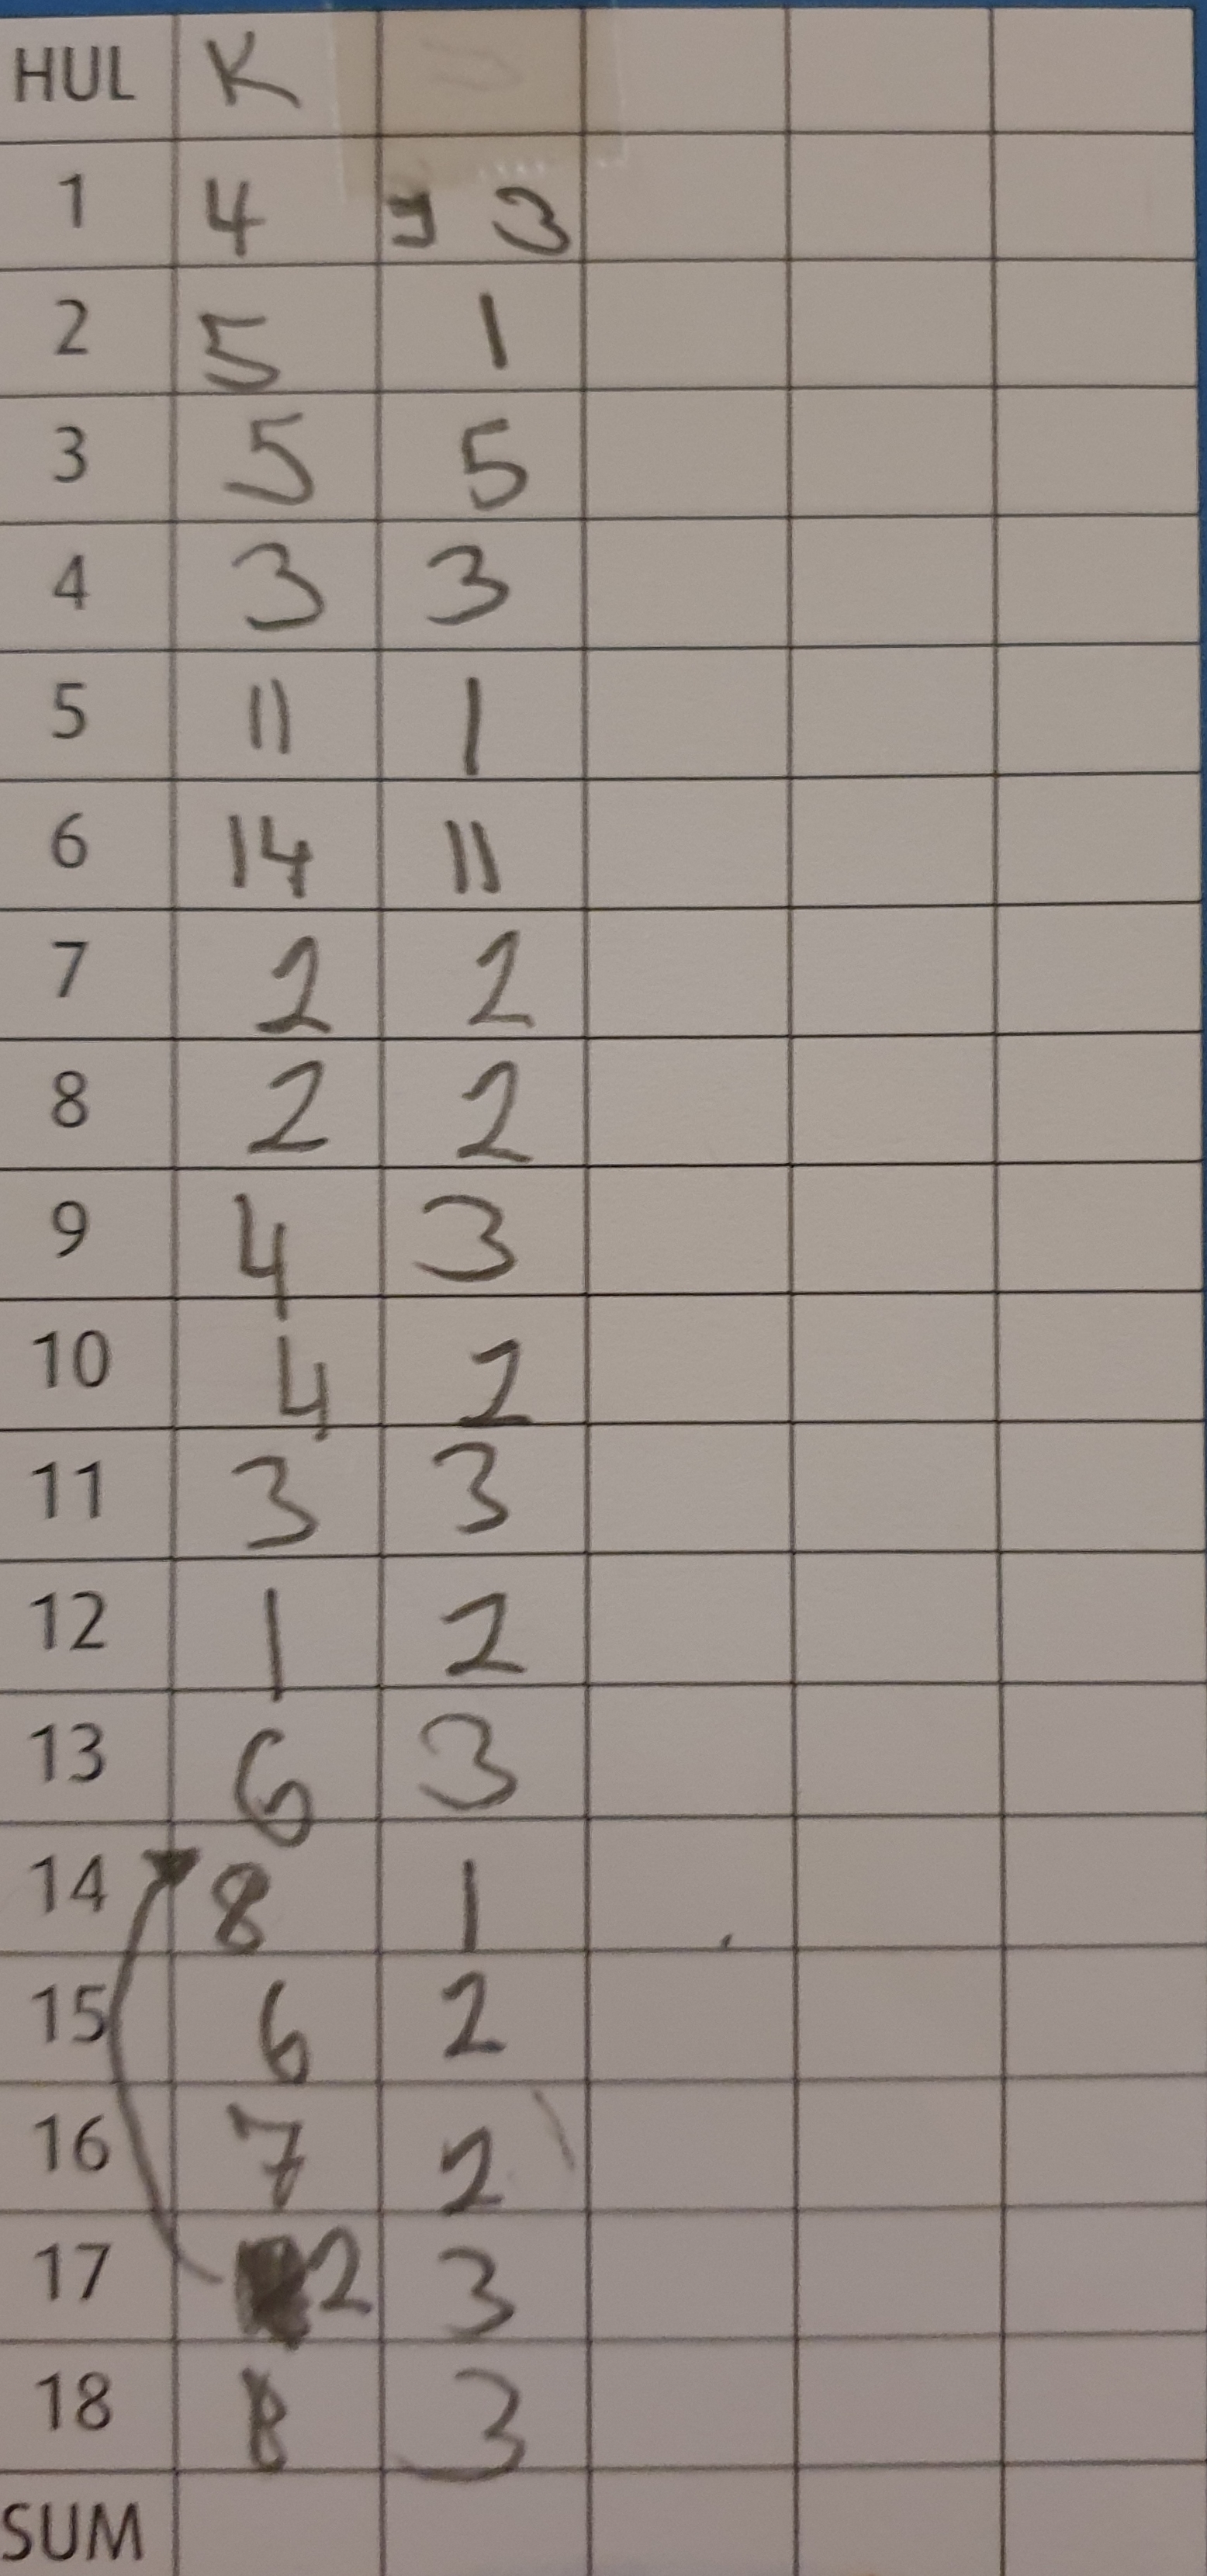 HUL K
1 4 3
2 5 1
3 5 5
4 3 3
5 11 1
6 14 11
7 2 2
8 2 2
9 4 3
10 4 2
11 3 3
12 1 2
13 6 3
14 8 1
15 6 2
16 7 2
17 2 3
18 8 3
SUM